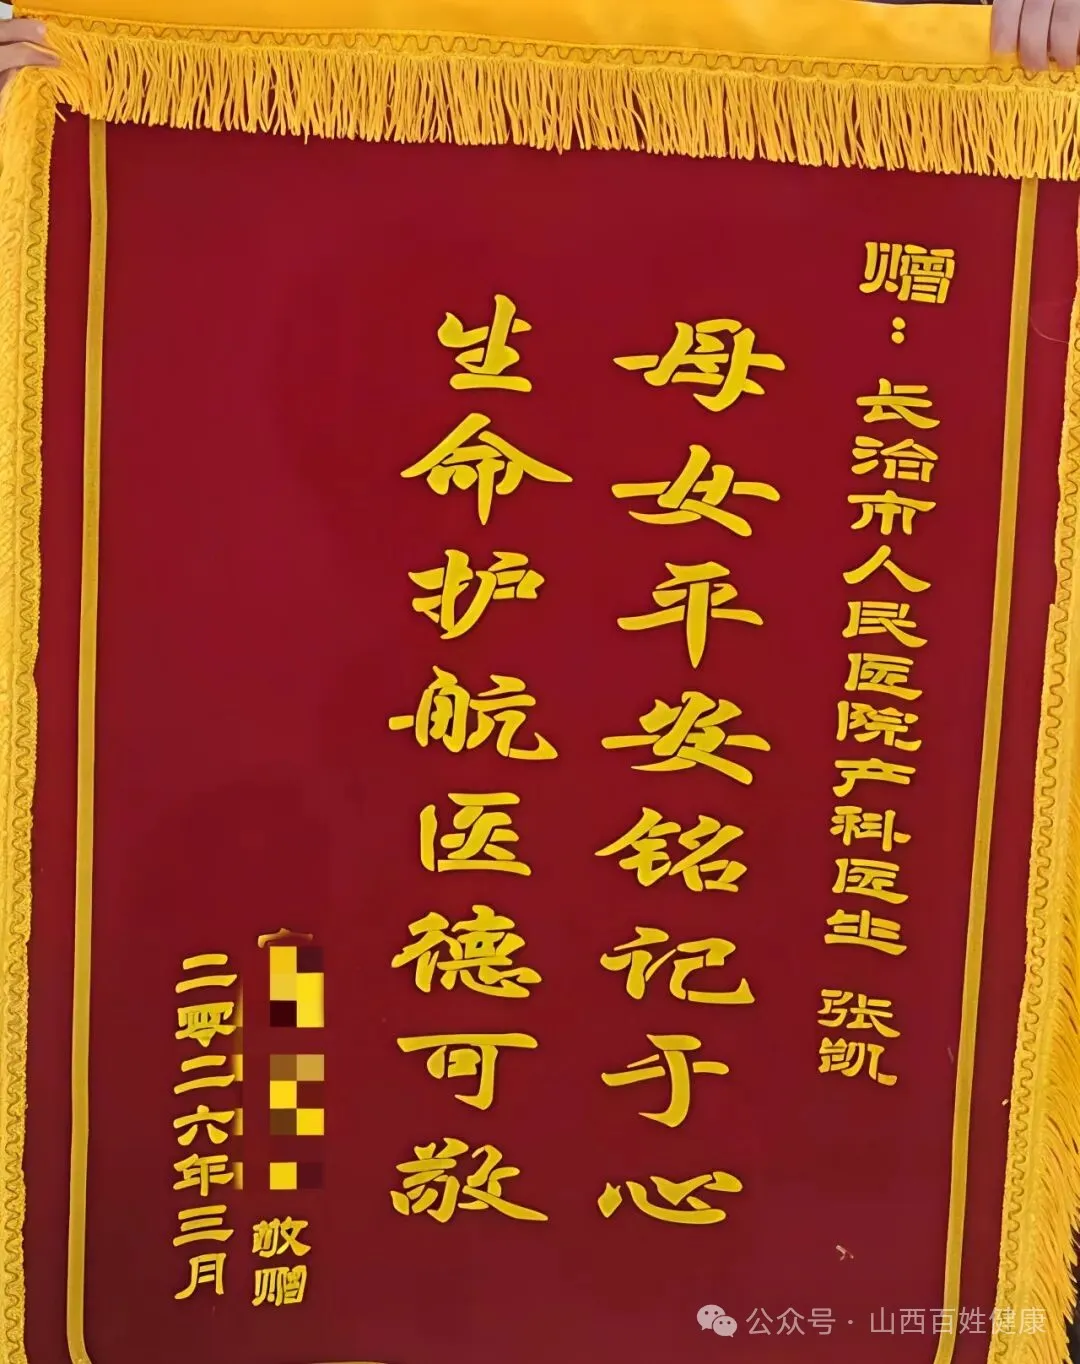 赠：长治市人民医院产科医生 张凯
母女平安铭记于心
生命护航医德可敬
敬赠
二零二六年三月
公众号·山西百姓健康